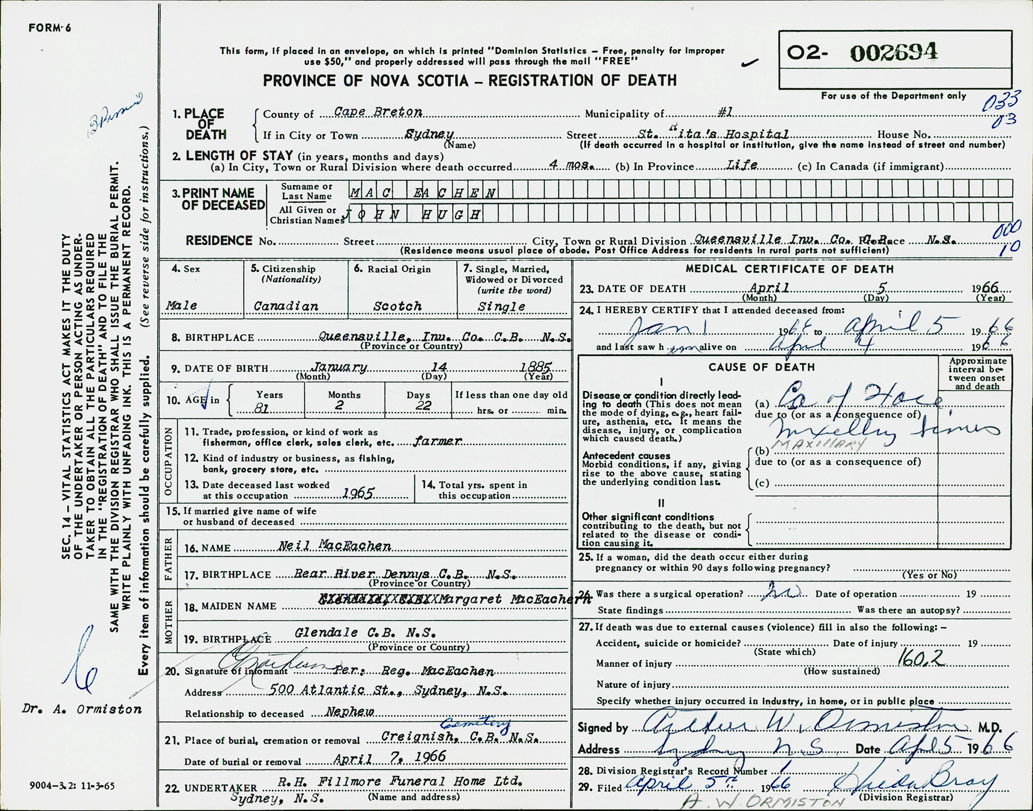 FORM-6
This form, if placed in an envelope, on which is printed "Dominion Statistics – Free, penalty for improper
use $50," and properly addressed will pass through the mail "FREE"
PROVINCE OF NOVA SCOTIA – REGISTRATION OF DEATH
02- 002694
For use of the Department only
033
03
1. PLACE OF DEATH
County of Cape Breton Municipality of #1
If in City or Town Sydney Street St. Rita's Hospital House No.
(Name) (If death occurred in a hospital or institution, give the name instead of street and number)
2. LENGTH OF STAY (in years, months and days)
(a) In City, Town or Rural Division where death occurred 4 mos. (b) In Province Life (c) In Canada (if immigrant)
3. PRINT NAME OF DECEASED
Surname or Last Name MAC EACHEN
All Given or Christian Names JOHN HUGH
000
10
RESIDENCE No. Street City, Town or Rural Division Queensville Inv. Co. N.S.
(Residence means usual place of abode. Post Office Address for residents in rural parts not sufficient)
4. Sex
Male
5. Citizenship
(Nationality)
Canadian
6. Racial Origin
Scotch
7. Single, Married,
Widowed or Divorced
(write the word)
Single
8. BIRTHPLACE Queensville, Inv. Co. C.B. N.S.
(Province or Country)
9. DATE OF BIRTH January 14 1885
(Month) (Day) (Year)
10. AGE in
Years Months Days If less than one day old
81 2 22 hrs. or min.
OCCUPATION
11. Trade, profession, or kind of work as
fisherman, office clerk, sales clerk, etc. farmer
12. Kind of industry or business, as fishing,
bank, grocery store, etc.
13. Date deceased last worked
at this occupation 1965
14. Total yrs. spent in
this occupation
15. If married give name of wife
or husband of deceased
FATHER
16. NAME Neil MacEachen
17. BIRTHPLACE Rear River Dennys C.B. N.S.
(Province or Country)
MOTHER
18. MAIDEN NAME Margaret MacEachern
19. BIRTHPLACE Glendale C.B. N.S.
(Province or Country)
20. Signature of informant Per; Reg. MacEachen
Address 500 Atlantic St., Sydney, N.S.
Relationship to deceased Nephew
Cemetery
21. Place of burial, cremation or removal Creignish, C.B. N.S.
Date of burial or removal April 7, 1966
22. UNDERTAKER R.H. Fillmore Funeral Home Ltd.
Sydney, N.S. (Name and address)
MEDICAL CERTIFICATE OF DEATH
23. DATE OF DEATH April 5 1966
(Month) (Day) (Year)
24. I HEREBY CERTIFY that I attended deceased from:
Jan 1 1966 to April 5 1966
and last saw him alive on April 4 1966
CAUSE OF DEATH
Approximate
interval be-
tween onset
and death
I
Disease or condition directly lead-
ing to death (This does not mean
the mode of dying, e.g., heart fail-
ure, asthenia, etc. It means the
disease, injury, or complication
which caused death.)
(a) Ca of
due to (or as a consequence of)
Antecedent causes
Morbid conditions, if any, giving
rise to the above cause, stating
the underlying condition last.
(b) MAXILLARY
due to (or as a consequence of)
(c)
II
Other significant conditions
contributing to the death, but not
related to the disease or condi-
tion causing it.
25. If a woman, did the death occur either during
pregnancy or within 90 days following pregnancy?
(Yes or No)
26. Was there a surgical operation? no Date of operation 19
State findings Was there an autopsy?
27. If death was due to external causes (violence) fill in also the following: –
Accident, suicide or homicide? Date of injury 19
(State which)
Manner of injury 160.2
(How sustained)
Nature of injury
Specify whether injury occurred in industry, in home, or in public place
Signed by Arthur W. Ormiston M.D.
Address Sydney N.S. Date Apl 5 1966
28. Division Registrar's Record Number
29. Filed April 5th 1966 Bray
(Division Registrar)
A.W. ORMISTON
SEC. 14 – VITAL STATISTICS ACT MAKES IT THE DUTY
OF THE UNDERTAKER OR PERSON ACTING AS UNDER-
TAKER TO OBTAIN ALL THE PARTICULARS REQUIRED
IN THE "REGISTRATION OF DEATH" AND TO FILE THE
SAME WITH THE DIVISION REGISTRAR WHO SHALL ISSUE THE BURIAL PERMIT.
WRITE PLAINLY WITH UNFADING INK. THIS IS A PERMANENT RECORD.
Every item of information should be carefully supplied. (See reverse side for instructions.)
Dr. A. Ormiston
9004-3.2: 11-3-65